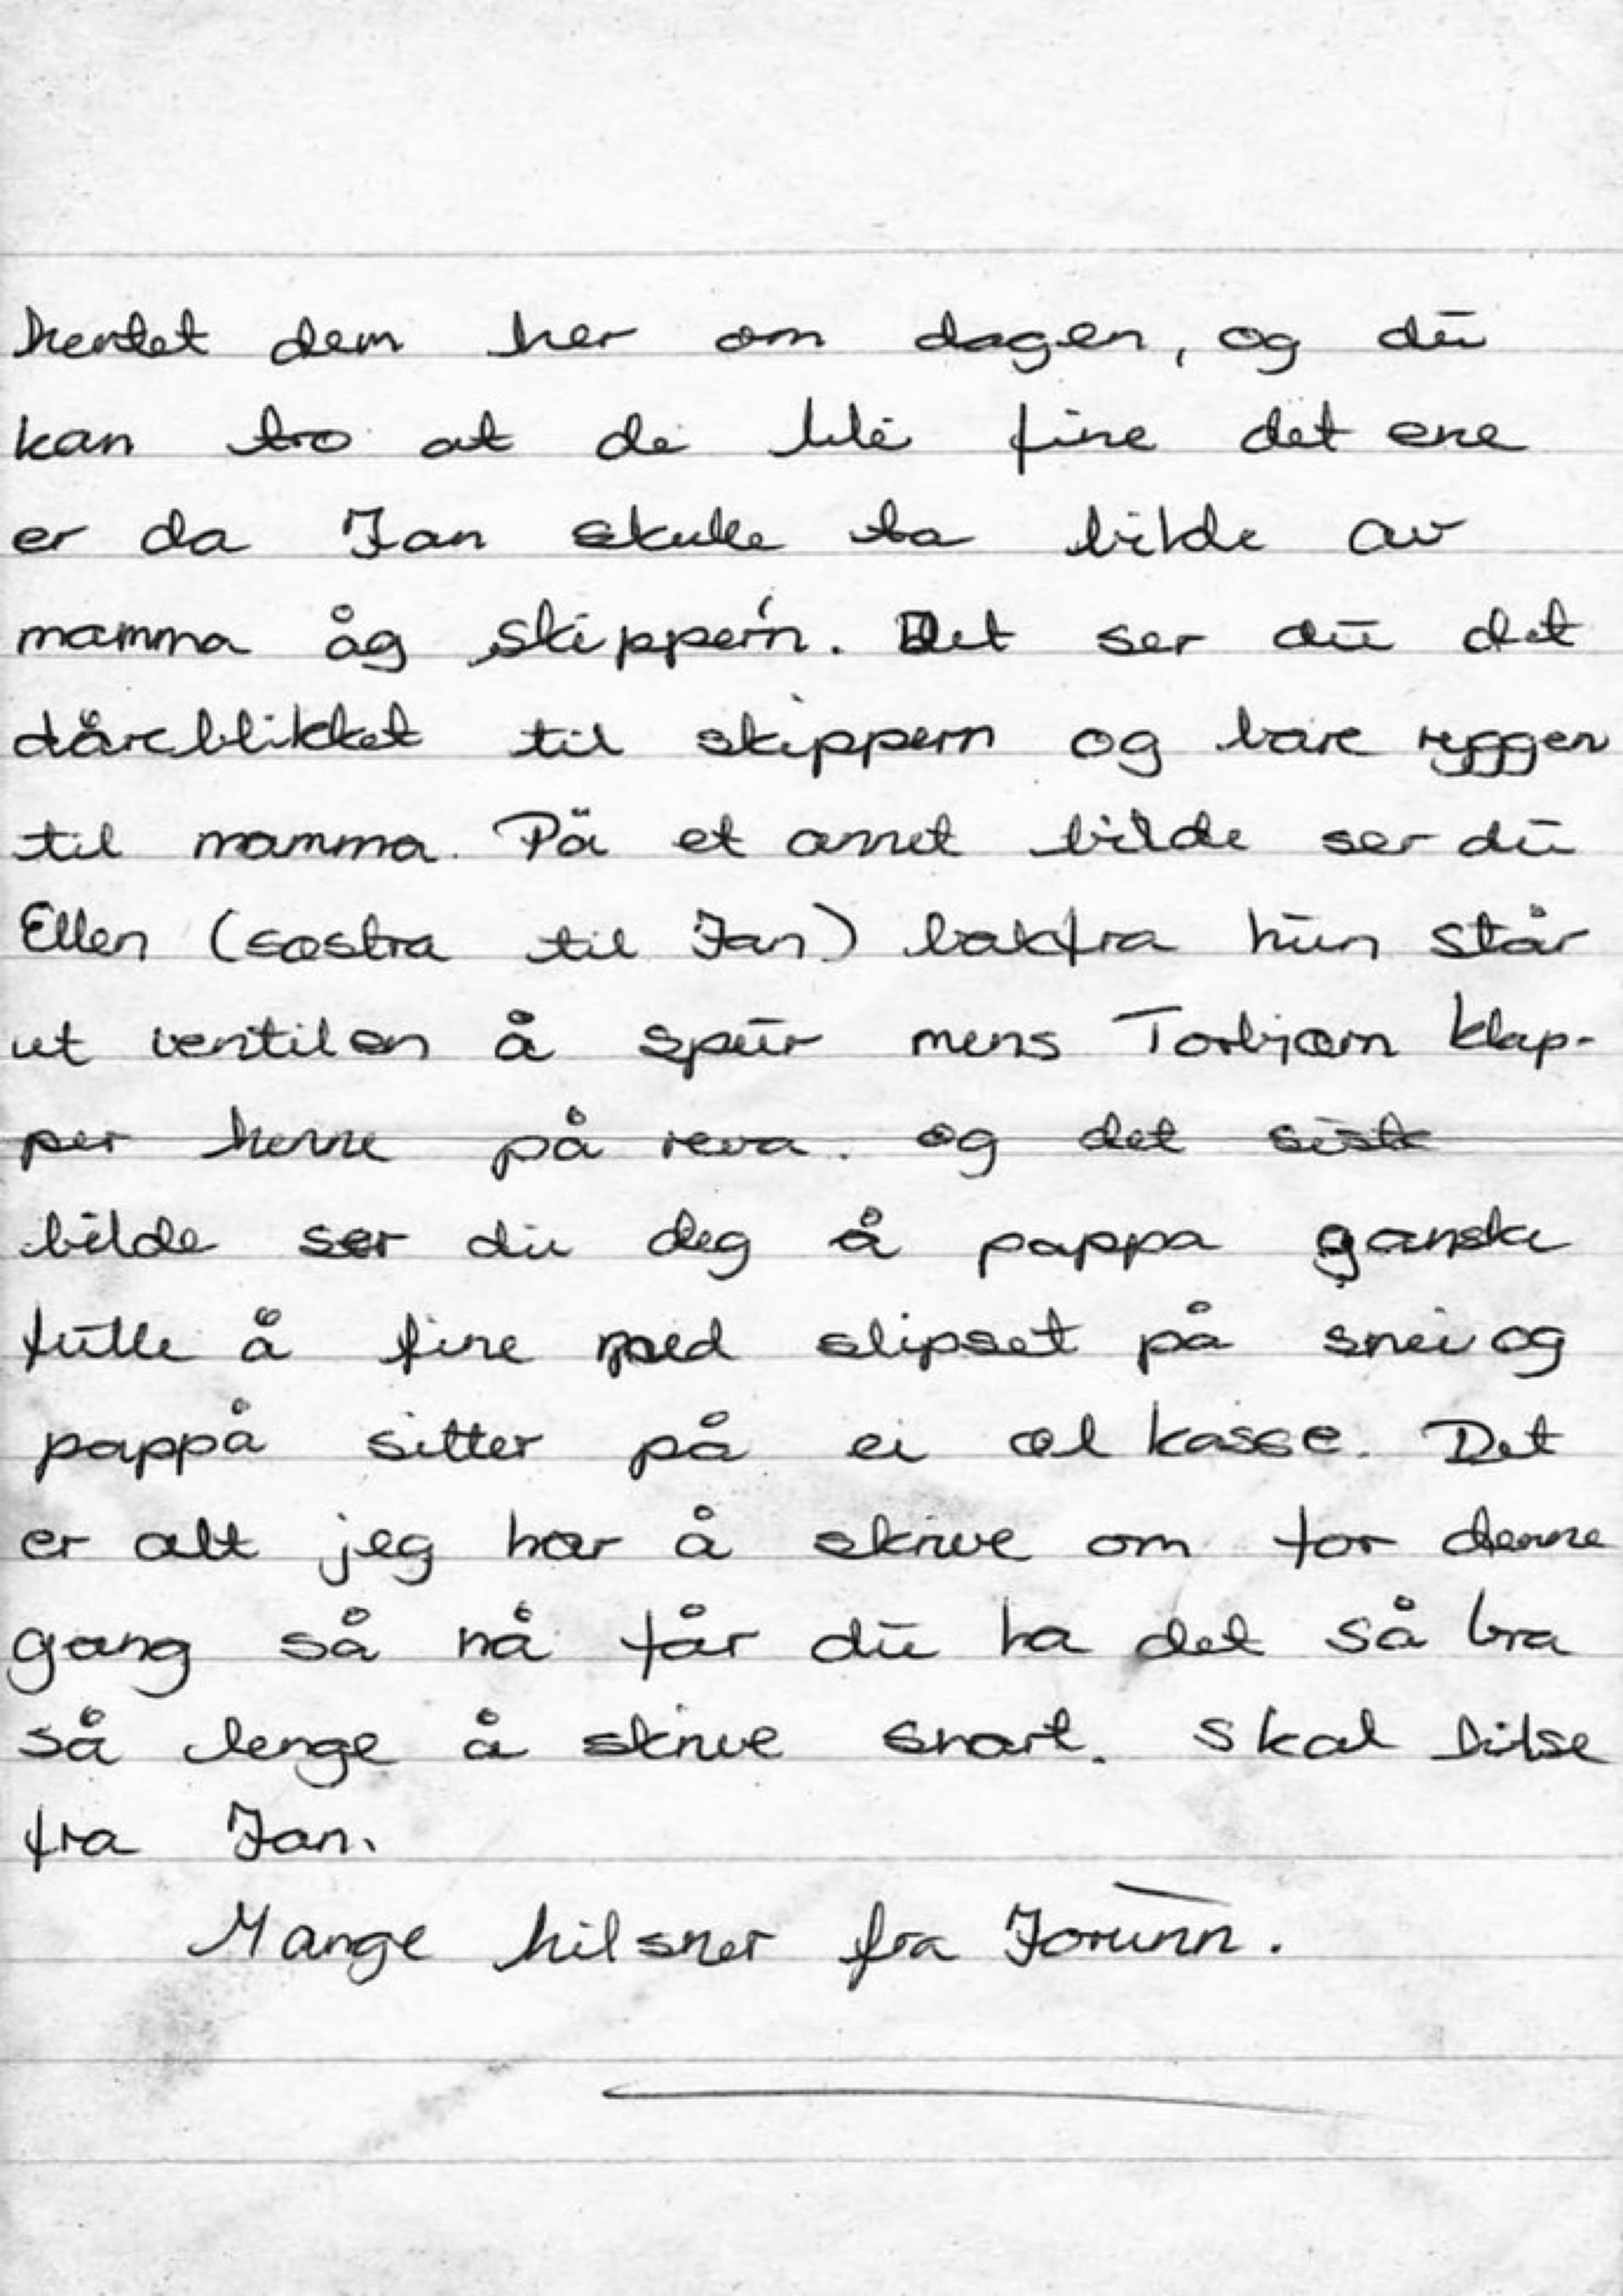 hentet dem her om dagen, og du
kan tro at de ble fine det ene
er da Jan skulle ta bilde av
mamma åg skipper'n. Det ser du det
dåreblikket til skippern og bare ryggen
til mamma. På et annet bilde ser du
Ellen (søstra til Jan) bakfra hun står
ut ventilen å spur mens Torbjørn klap-
per henne på reva. og det siste
bilde ser du deg å pappa ganske
fulle å fine med slipset på snei og
pappå sitter på ei øl kasse. Det
er alt jeg har å skrive om for denne
gang så nå får du ha det så bra
så lenge å skrive snart. Skal hilse
fra Jan.
Mange hilsner fra Jorunn.